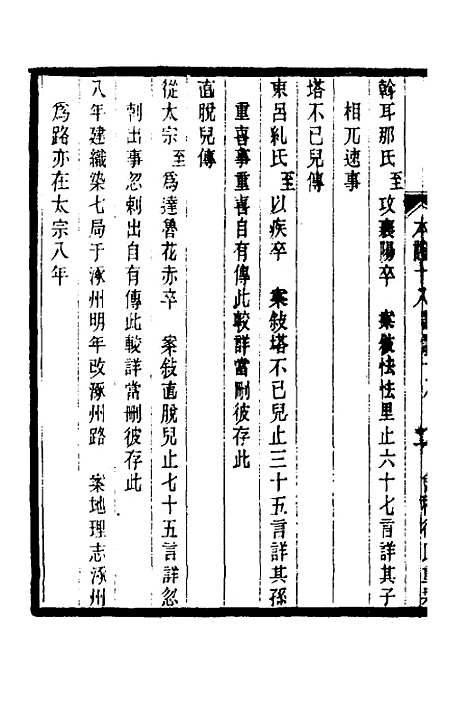 斡耳那氏至攻襄陽卒　案敍怯怯里止六十七言詳其子
相兀速事
塔不已兒傳
東呂糺氏至以疾卒　案敍塔不已兒止三十五言詳其孫
重喜事重喜自有傳此較詳當刪彼存此
直脫兒傳
從太宗至為達魯花赤卒　案敍直脫兒止七十五言詳忽
剌出事忽剌出自有傳此較詳當刪彼存此
八年建織染七局于涿州明年改涿州路　案地理志涿州
為路亦在太宗八年